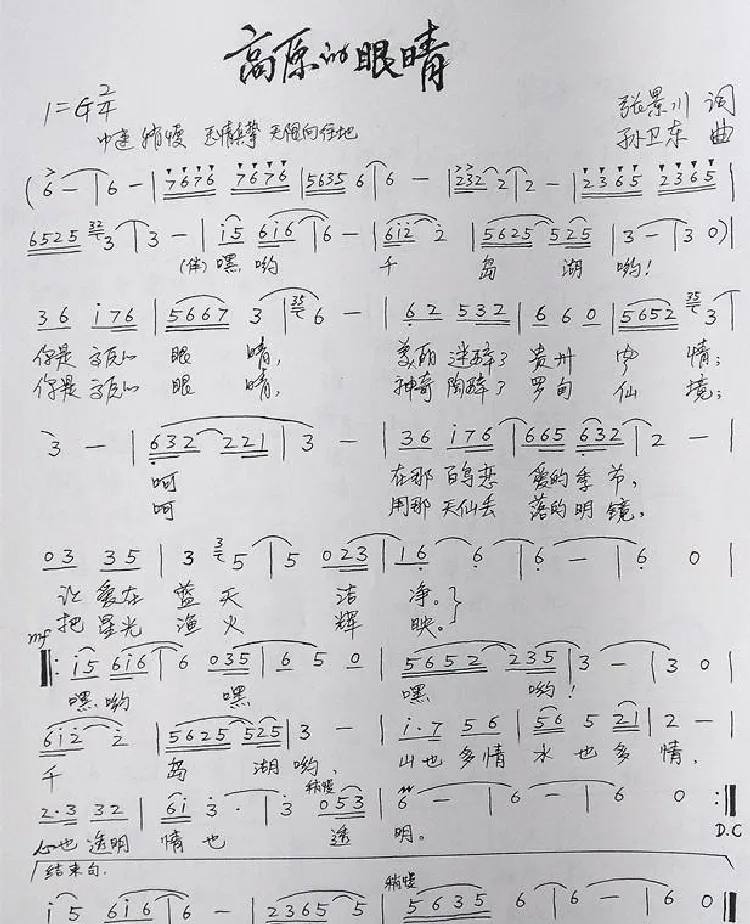 高原的眼睛
1=G 2/4
张景川 词
中速 稍慢 无限向往地
孙卫东 曲
(6 — | 6 — | 7676 7676 | 5635 6 | 6 — | 232 2 | 2 — | 2365 2365 |
6525 32 3 | 3 — | i5 6i6 | 6 — | 6i2 2 | 5625 525 | 3 — | 3 0) |
(伴) 嘿 哟 千 岛 湖 哟!
36 i76 | 5667 3 | 35 6 — | 62 532 | 6 6 0 | 5652 35 3 |
你是高原的 眼 睛, 美丽迷醉了 贵州 情;
你是高原的 眼 睛, 神奇陶醉了 罗甸 仙 境;
3 — | 632 221 | 3 — | 36 i76 | 665 632 | 2 — |
呵 在那百鸟恋 爱的季节,
呵 用那天仙丢 落的明镜。
03 35 | 3 3 5 | 5 023 | 16 6 | 6 — | 6 0 |
让爱在 蓝天 洁 净。
把星光 渔火 辉 映。
mf
|: i5 6i6 | 6 035 | 6 5 0 | 5652 235 | 3 — | 3 0 |
嘿哟 嘿 嘿 哟!
6i2 2 | 5625 525 | 3 — | i·7 56 | 56 5 21 | 2 — |
千 岛 湖哟, 山也多情 水也多情,
稍慢
2·3 32 | 6i 3· | 3 053 | 6 — | 6 — | 6 0 :|
心也透明 情也 透 明。 D.C
结束句.
稍慢
i5 6i6 | 6 — | 2365 5 | 5635 6 | 6 — | 6 0 |